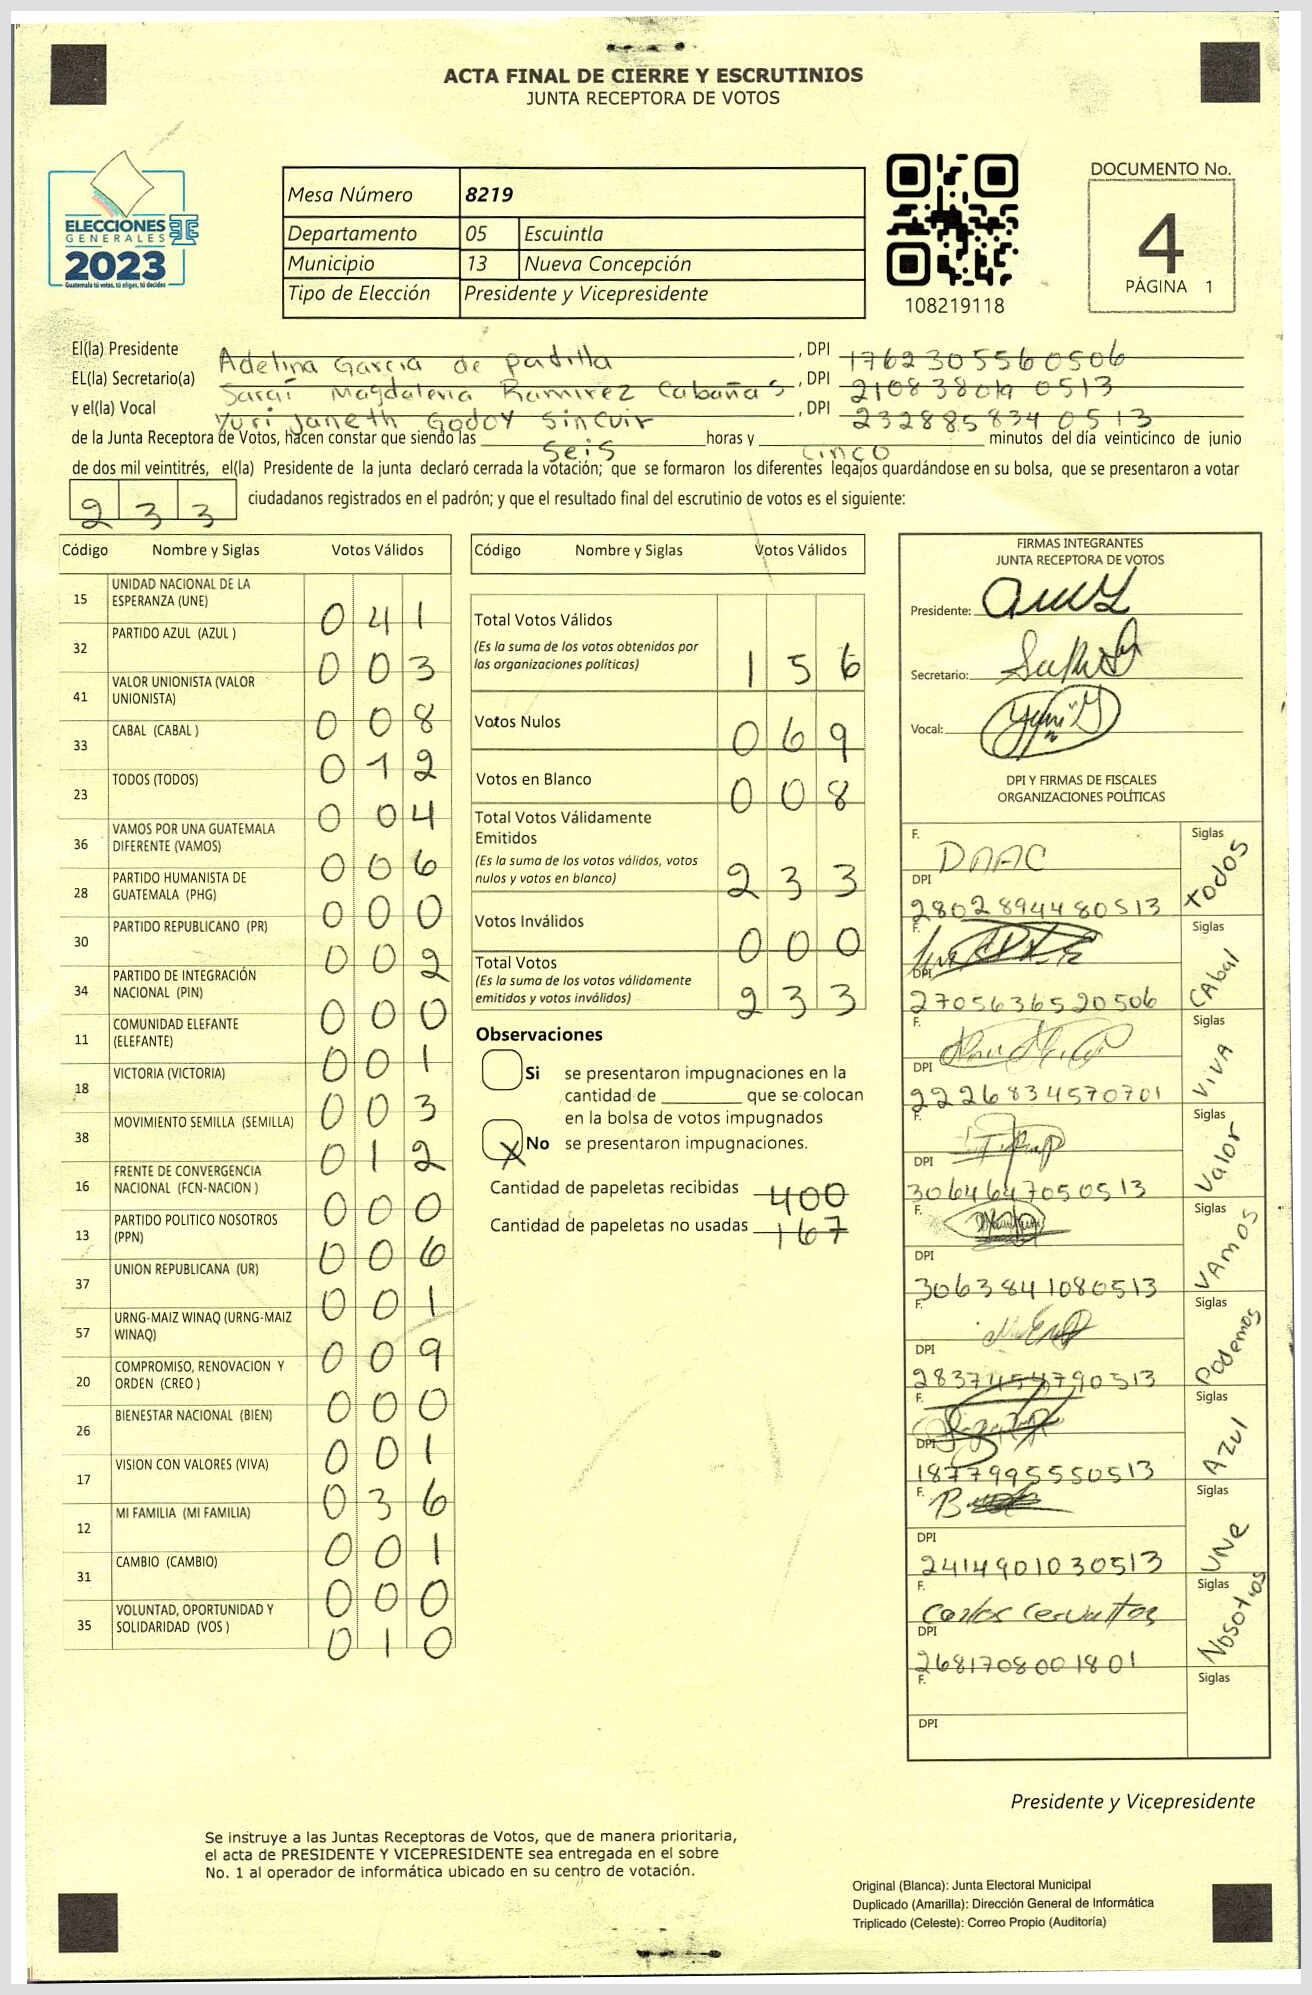 ACTA FINAL DE CIERRE Y ESCRUTINIOS
JUNTA RECEPTORA DE VOTOS
ELECCIONES
GENERALES
2023
Guatemala tú votas, tú eliges, tú decides
Mesa Número 8219
Departamento 05 Escuintla
Municipio 13 Nueva Concepción
Tipo de Elección Presidente y Vicepresidente
108219118
DOCUMENTO No.
4
PÁGINA 1
El(la) Presidente Adelina Garcia de Padilla, DPI 1762305560506
EL(la) Secretario(a) Sarai Magdalena Ramirez Cabañas, DPI 210838019 0513
y el(la) Vocal Yuri Janeth Godoy Sincuir, DPI 232885834 0513
de la Junta Receptora de Votos, hacen constar que siendo las seis horas y cinco minutos del día veinticinco de junio
de dos mil veintitrés, el(la) Presidente de la junta declaró cerrada la votación; que se formaron los diferentes legajos guardándose en su bolsa, que se presentaron a votar
233 ciudadanos registrados en el padrón; y que el resultado final del escrutinio de votos es el siguiente:
Código Nombre y Siglas Votos Válidos
15 UNIDAD NACIONAL DE LA ESPERANZA (UNE) 041
32 PARTIDO AZUL (AZUL ) 003
41 VALOR UNIONISTA (VALOR UNIONISTA) 008
33 CABAL (CABAL ) 012
23 TODOS (TODOS) 004
36 VAMOS POR UNA GUATEMALA DIFERENTE (VAMOS) 006
28 PARTIDO HUMANISTA DE GUATEMALA (PHG) 000
30 PARTIDO REPUBLICANO (PR) 002
34 PARTIDO DE INTEGRACIÓN NACIONAL (PIN) 000
11 COMUNIDAD ELEFANTE (ELEFANTE) 001
18 VICTORIA (VICTORIA) 003
38 MOVIMIENTO SEMILLA (SEMILLA) 012
16 FRENTE DE CONVERGENCIA NACIONAL (FCN-NACION ) 000
13 PARTIDO POLITICO NOSOTROS (PPN) 006
37 UNION REPUBLICANA (UR) 001
57 URNG-MAIZ WINAQ (URNG-MAIZ WINAQ) 009
20 COMPROMISO, RENOVACION Y ORDEN (CREO ) 000
26 BIENESTAR NACIONAL (BIEN) 001
17 VISION CON VALORES (VIVA) 036
12 MI FAMILIA (MI FAMILIA) 001
31 CAMBIO (CAMBIO) 000
35 VOLUNTAD, OPORTUNIDAD Y SOLIDARIDAD (VOS ) 010
Código Nombre y Siglas Votos Válidos
Total Votos Válidos 156
(Es la suma de los votos obtenidos por
las organizaciones políticas)
Votos Nulos 069
Votos en Blanco 008
Total Votos Válidamente
Emitidos 233
(Es la suma de los votos válidos, votos
nulos y votos en blanco)
Votos Inválidos 000
Total Votos 233
(Es la suma de los votos válidamente
emitidos y votos inválidos)
Observaciones
Si se presentaron impugnaciones en la
cantidad de ________ que se colocan
en la bolsa de votos impugnados
X No se presentaron impugnaciones.
Cantidad de papeletas recibidas 400
Cantidad de papeletas no usadas 167
FIRMAS INTEGRANTES
JUNTA RECEPTORA DE VOTOS
Presidente:
Secretario:
Vocal: Yuri G
DPI Y FIRMAS DE FISCALES
ORGANIZACIONES POLÍTICAS
F. DAAC Siglas Todos
DPI 2802894480513
F. Siglas CAbal
DPI 2705636520506
F. Siglas VIVA
DPI 2226834570701
F. Siglas Valor
DPI 3064647050513
F. Siglas VAMOS
DPI 3063841080513
F. Siglas Podemos
DPI 2837454790513
F. Siglas AZul
DPI 1877995550513
F. Siglas UNe
DPI 2414901030513
F. Carlos Cervantes Siglas Nosotros
DPI 2681708001801
F. Siglas
DPI
Presidente y Vicepresidente
Se instruye a las Juntas Receptoras de Votos, que de manera prioritaria,
el acta de PRESIDENTE Y VICEPRESIDENTE sea entregada en el sobre
No. 1 al operador de informática ubicado en su centro de votación.
Original (Blanca): Junta Electoral Municipal
Duplicado (Amarilla): Dirección General de Informática
Triplicado (Celeste): Correo Propio (Auditoria)